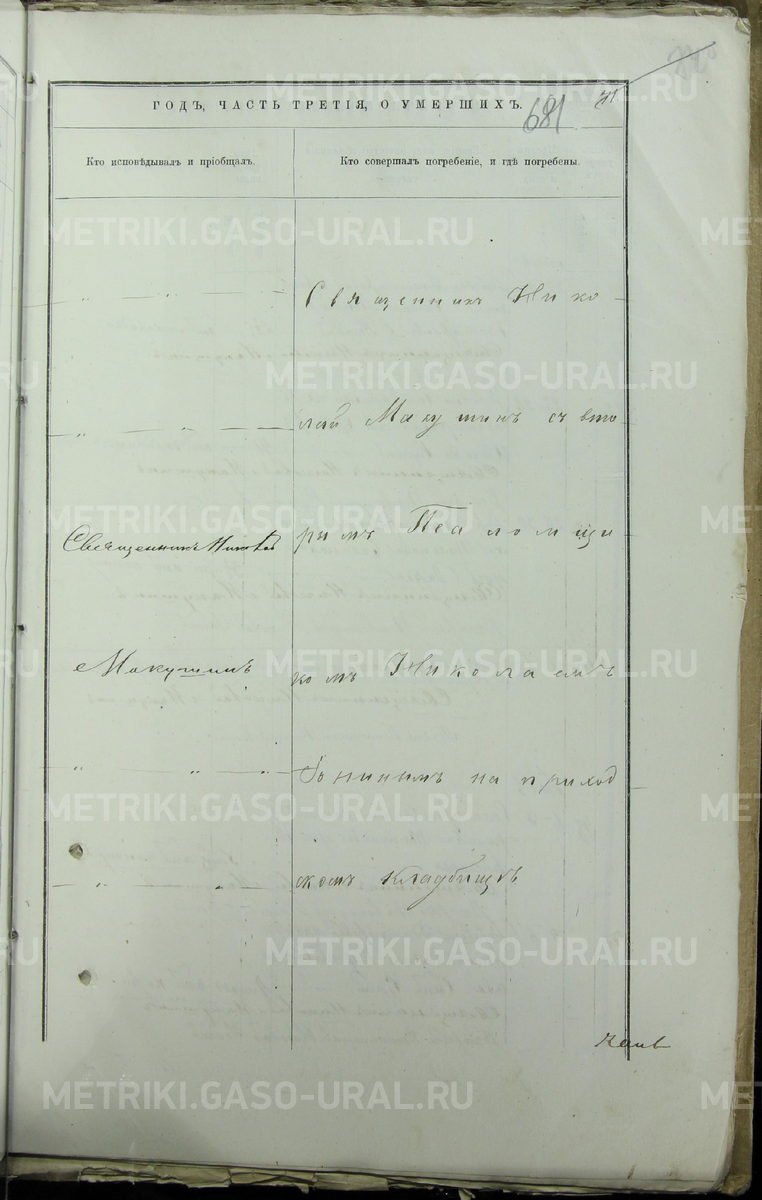 ГОДЪ, ЧАСТЬ ТРЕТІЯ, О УМЕРШИХЪ.
681
Кто исповѣдывалъ и пріобщалъ.
Кто совершалъ погребеніе, и гдѣ погребены.
Священникъ Нико
лай Макушинъ съ вто
Священникъ Николай
рымъ Псаломщи
Макушинъ
комъ Николаемъ
на приход
скомъ кладбищѣ
METRIKI.GASO-URAL.RU